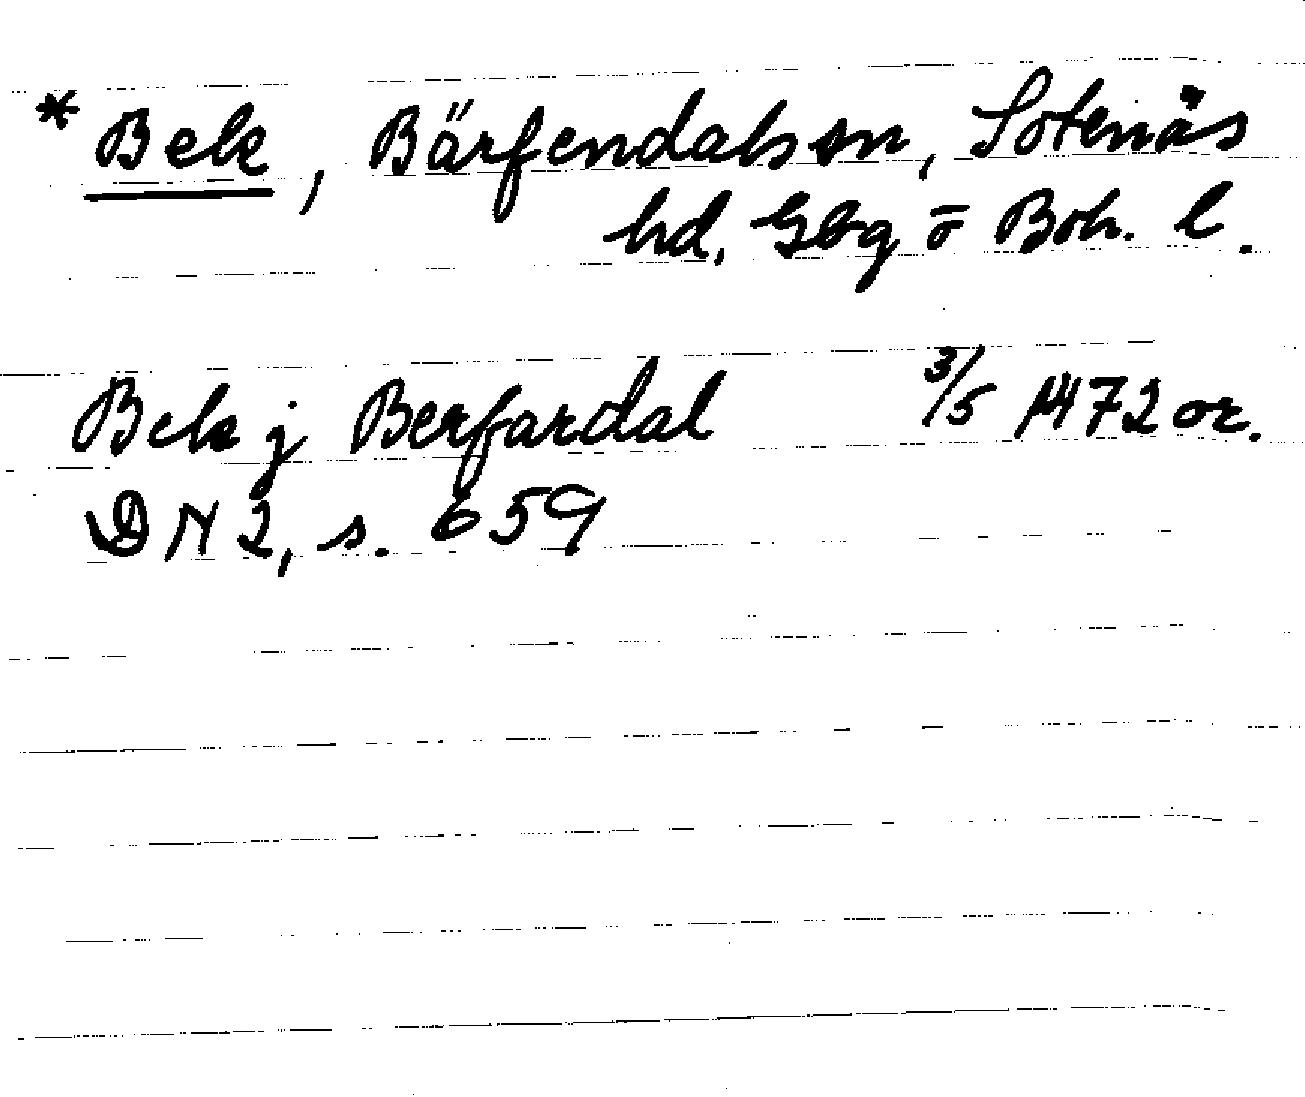 * Bek, Bärfendals sn, Sotenäs
hd, Gbg ō Boh. l.
Bek j Berfardal 3/5 1472 or.
DN 2, s. 659